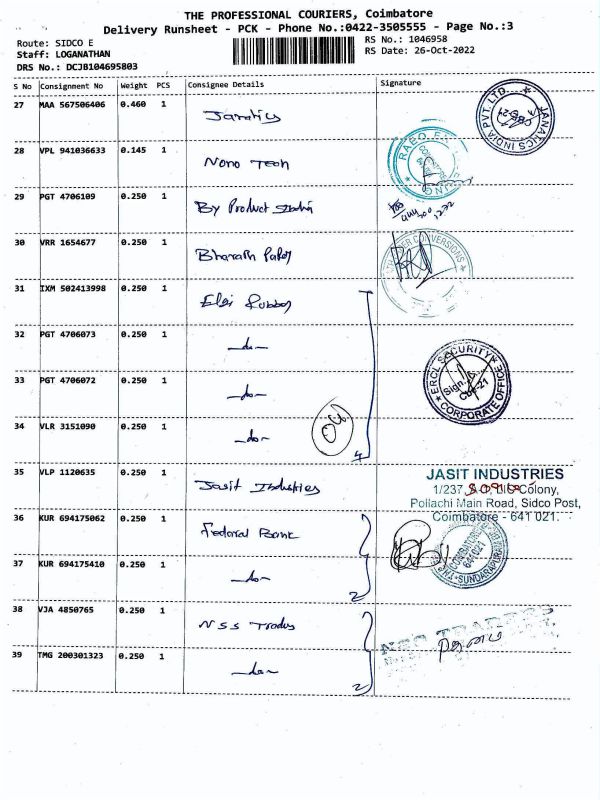 THE PROFESSIONAL COURIERS, Coimbatore
Delivery Runsheet - PCK - Phone No.:0422-3505555 - Page No.:3
Route: SIDCO E
Staff: LOGANATHAN
DRS No.: DCJB104695803
RS No.: 1046958
RS Date: 26-Oct-2022
S No Consignment No Weight PCS Consignee Details Signature
27 MAA 567506406 0.460 1
JANANICS INDIA PVT. LTD.
28 VPL 941036633 0.145 1 Nono Tech
29 PGT 4706109 0.250 1 By Product
30 VRR 1654677 0.250 1 Bharath
CONVERSIONS
31 IXM 502413998 0.250 1 Elgi Rubber
32 PGT 4706073 0.250 1 -do-
33 PGT 4706072 0.250 1 -do-
ERCL SECURITY
Sign.
CORPORATE OFFICE
34 VLR 3151090 0.250 1 -do- 04 4
35 VLP 1120635 0.250 1 Jasit Industries
JASIT INDUSTRIES
Colony,
Pollachi Main Road, Sidco Post,
Coimbatore - 641 021.
36 KUR 694175062 0.250 1 Federal Bank
37 KUR 694175410 0.250 1 -do- 2
COIMBATORE
641021
SUNDARAPURAM
38 VJA 4850765 0.250 1 NSS Trades
39 TMG 200301323 0.250 1 -do- 2